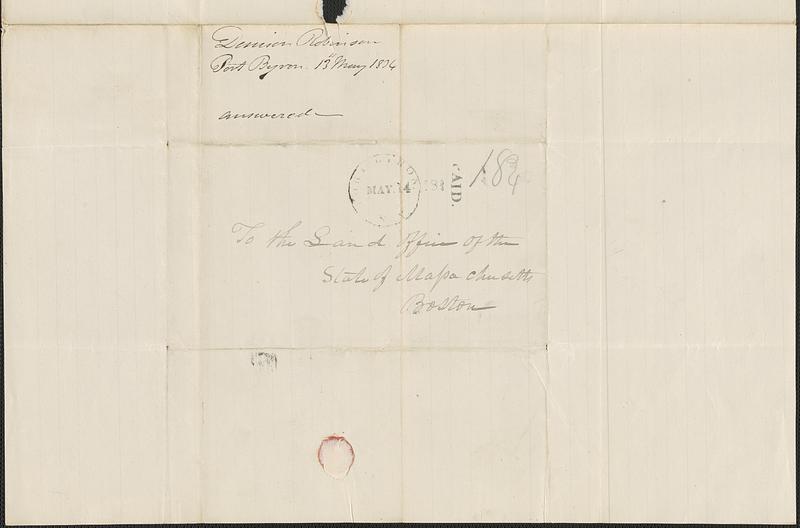 Denison Robinson
Port Byron 13th May 1834
answered
PORT BYRON
MAY. 14
N.Y
183
PAID.
18¾
To the Land Office of the
State of Massachusetts
Boston